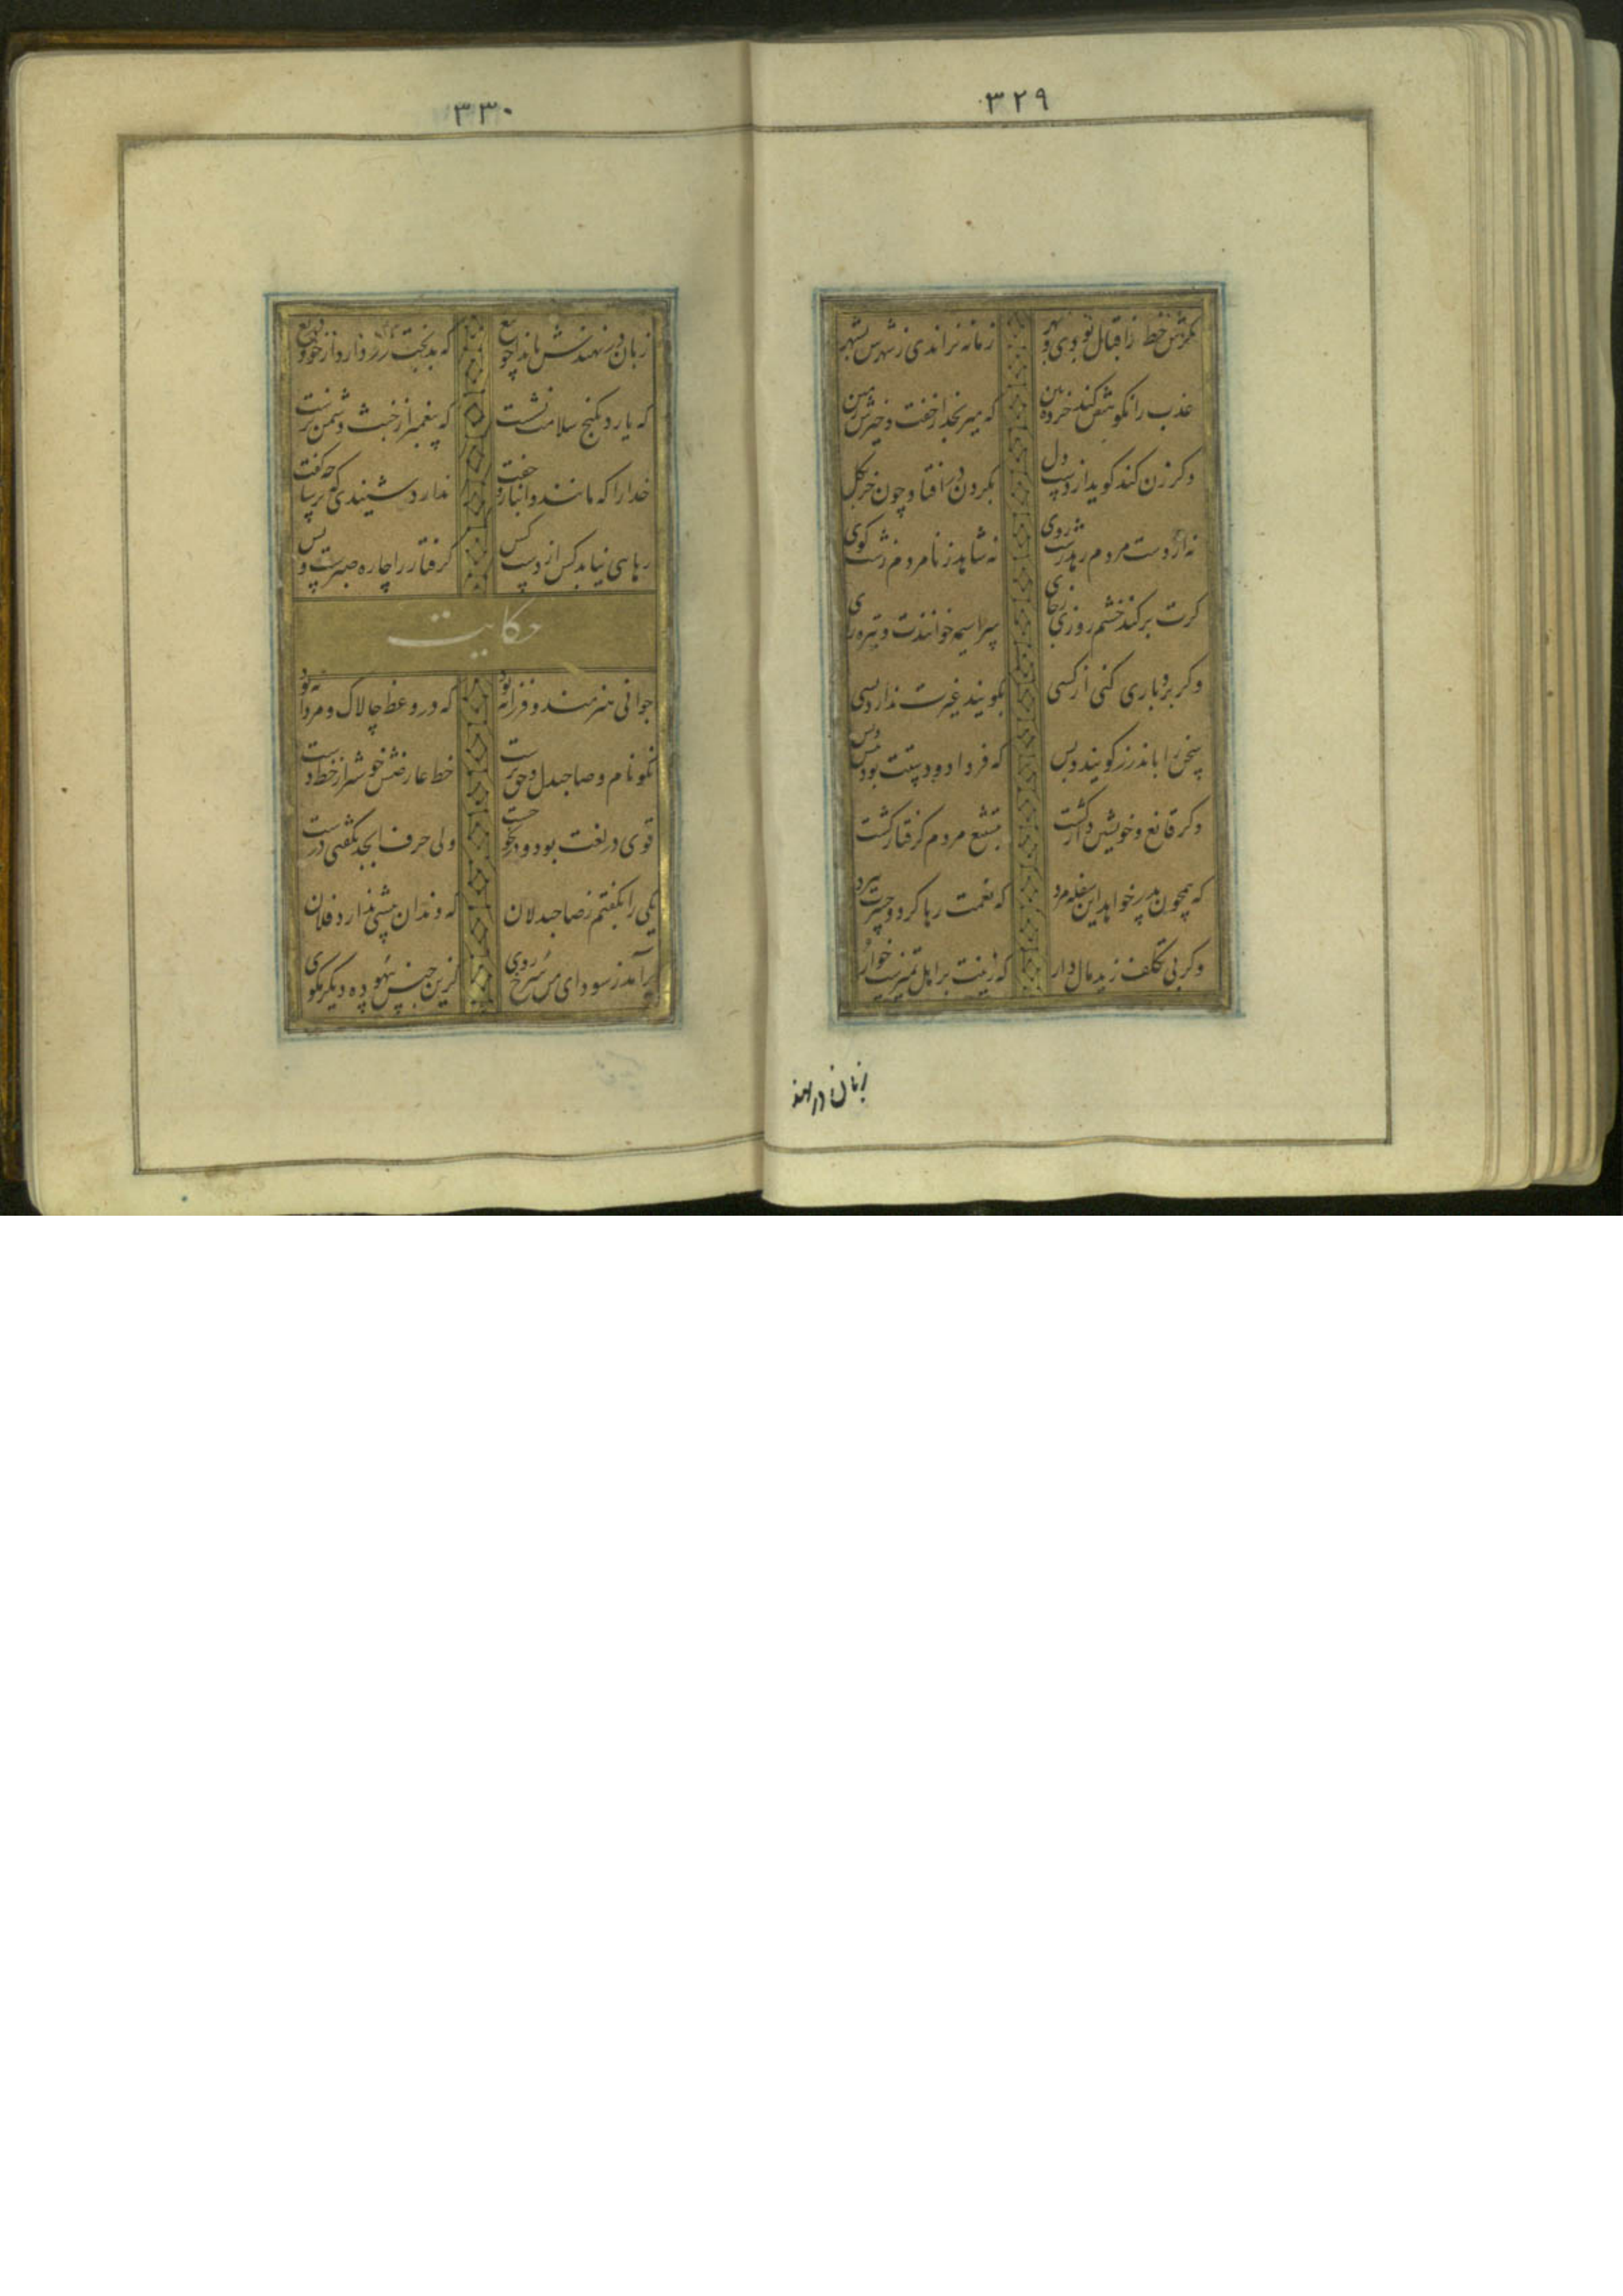 ۳۲۹
گرش حظ ز اقبال بودی و بهر زمانه نراندی ز شهرش بشهر
عذب را نکوهش کند خرده بین که میرنجد از خفت و خیزش زمین
وکر زن کند کوید از دست دل بکردن در افتاد چون خر بکل
نه از دست مردم رهد زشت روی نه شاهد ز نامردم زشت کوی
کرت برکند خشم روزی ز جای سراسیمه خوانندت و تیره رای
وکر بردباری کنی از کسی بکویند غیرت ندارد بسی
سخی را باندرز کویند بس که فردا دو دستت بود پیش و پس
وکر قانع و خویشتن دار کشت بتشنیع مردم کرفتار کشت
که همچون پدر خواهد این سفله مرد که نعمت رها کرد و حسرت ببرد
وکر بی تکلف زید مال دار که زینت بر اهل تمیزست خوار
زبان در نهند
۳۳۰
زبان در نهندش بایذا چو تیغ که بدبخت زر دارد از خود دریغ
که یارد بکنج سلامت نشست که پیغمبر از خبث دشمن نرست
خدا را که مانند و انباز و جفت ندارد شنیدی که ترسا چه گفت
رهایی نیابد کس از دست کس کرفتار را چاره صبرست و بس
حکایت
جوانی هنرمند و فرزانه بود که در وعظ چالاک و مردانه بود
نکونام و صاحبدل و حق پرست خط عارضش خوشتر از خط دست
قوی در لغت بود و در نحو چست ولی حرف ابجد نگفتی درست
یکی را بکفتم ز صاحبدلان که دندان پیشین ندارد فلان
برآمد ز سودای من سرخ روی کزین جنس بیهوده دیکر مکوی